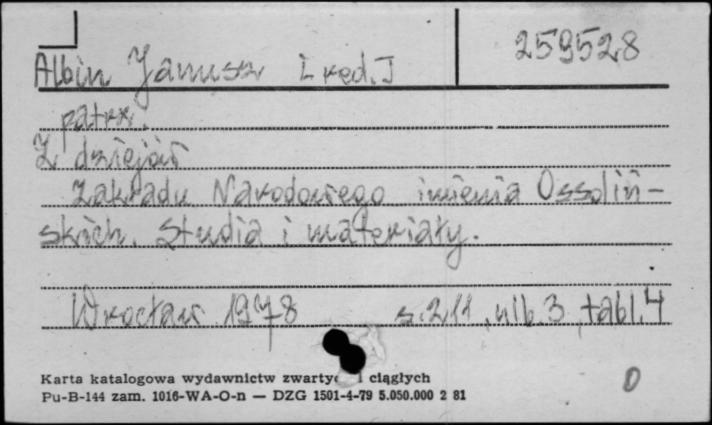 259528
Albin Janusz [red.]
patrz.
Z dziejów
Zakładu Narodowego imienia Ossoliń-
skich. Studia i materiały.
Wrocław 1978 s. 211, nlb. 3, tabl. 4
Karta katalogowa wydawnictw zwartych i ciągłych
Pu-B-144 zam. 1016-WA-O-n — DZG 1501-4-79 5.050.000 2 81
0